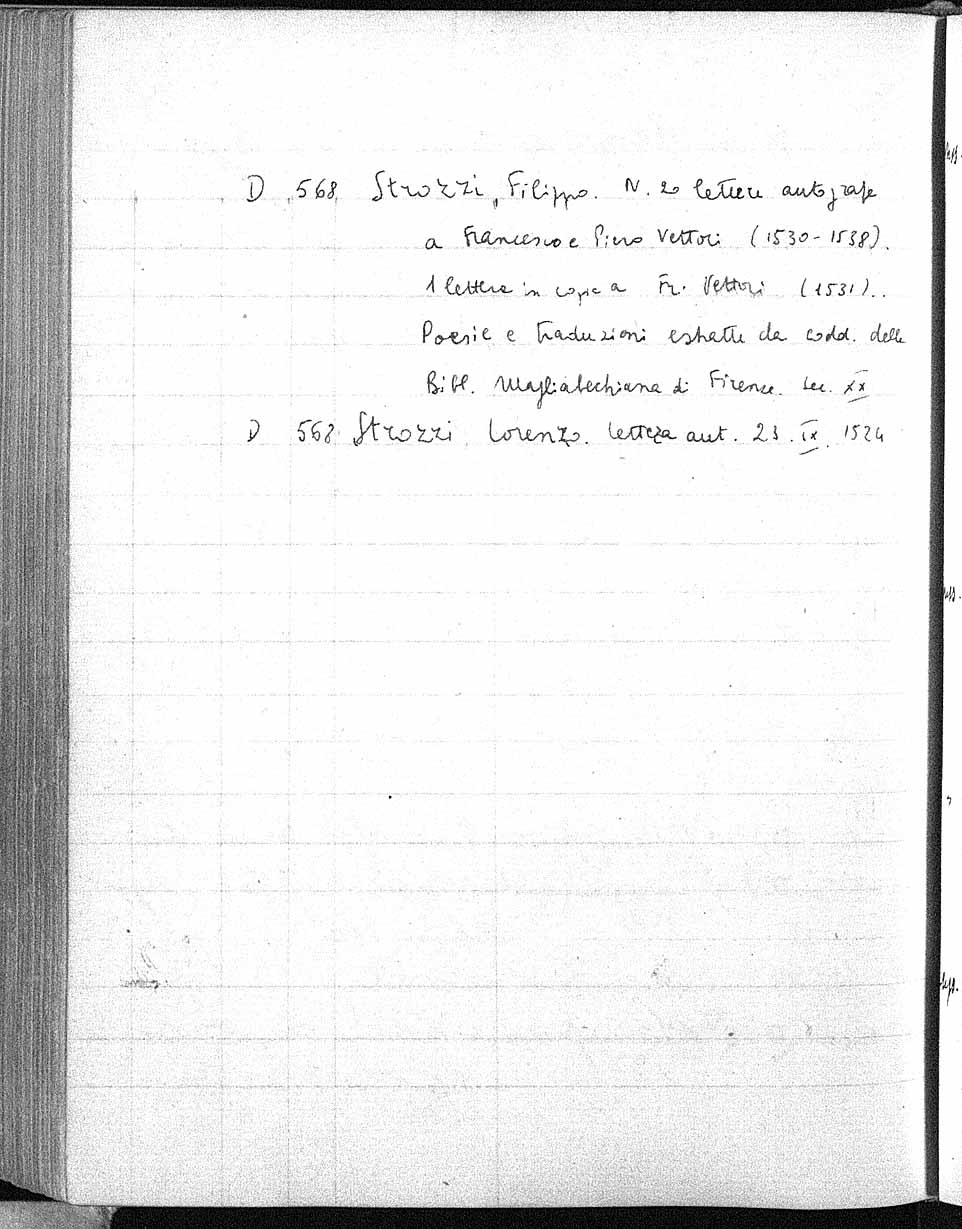 D 568 Strozzi, Filippo. N. 20 lettere autografe
a Francesco e Piero Vettori (1530-1538).
1 lettera in copia a Fr. Vettori (1531)..
Poesie e traduzioni estratte da codd. della
Bibl. Magliabechiana di Firenze. Sec. XX
D 568 Strozzi Lorenzo. lettera aut. 23. IX. 1524